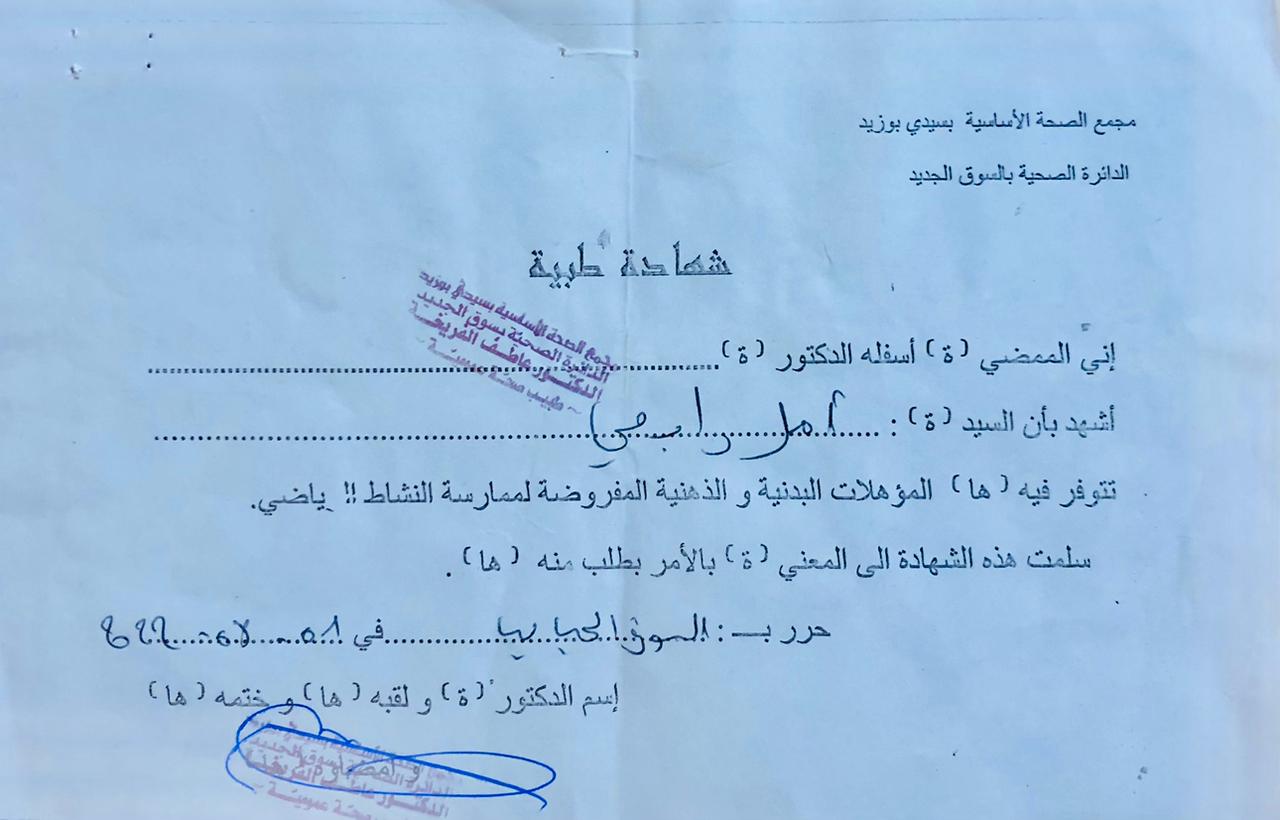 مجمع الصحة الأساسية بسيدي بوزيد
الدائرة الصحية بالسوق الجديد
شهادة طبية
مجمع الصحة الأساسية بسيدي بوزيد
الدائرة الصحية بسوق الجديد
الدكتور عاطف الفريضة
طبيب صحة عمومية
إني الممضي (ة) أسفله الدكتور (ة)
أشهد بأن السيد (ة) : أمل رابحي
تتوفر فيه (ها) المؤهلات البدنية و الذهنية المفروضة لممارسة النشاط !! ياضي.
سلمت هذه الشهادة الى المعني (ة) بالأمر بطلب منه (ها) .
حرر بـ : السوق في
إسم الدكتور (ة) و لقبه (ها) و ختمه (ها)
و إمضاؤه
الدائرة الصحية بسوق الجديد